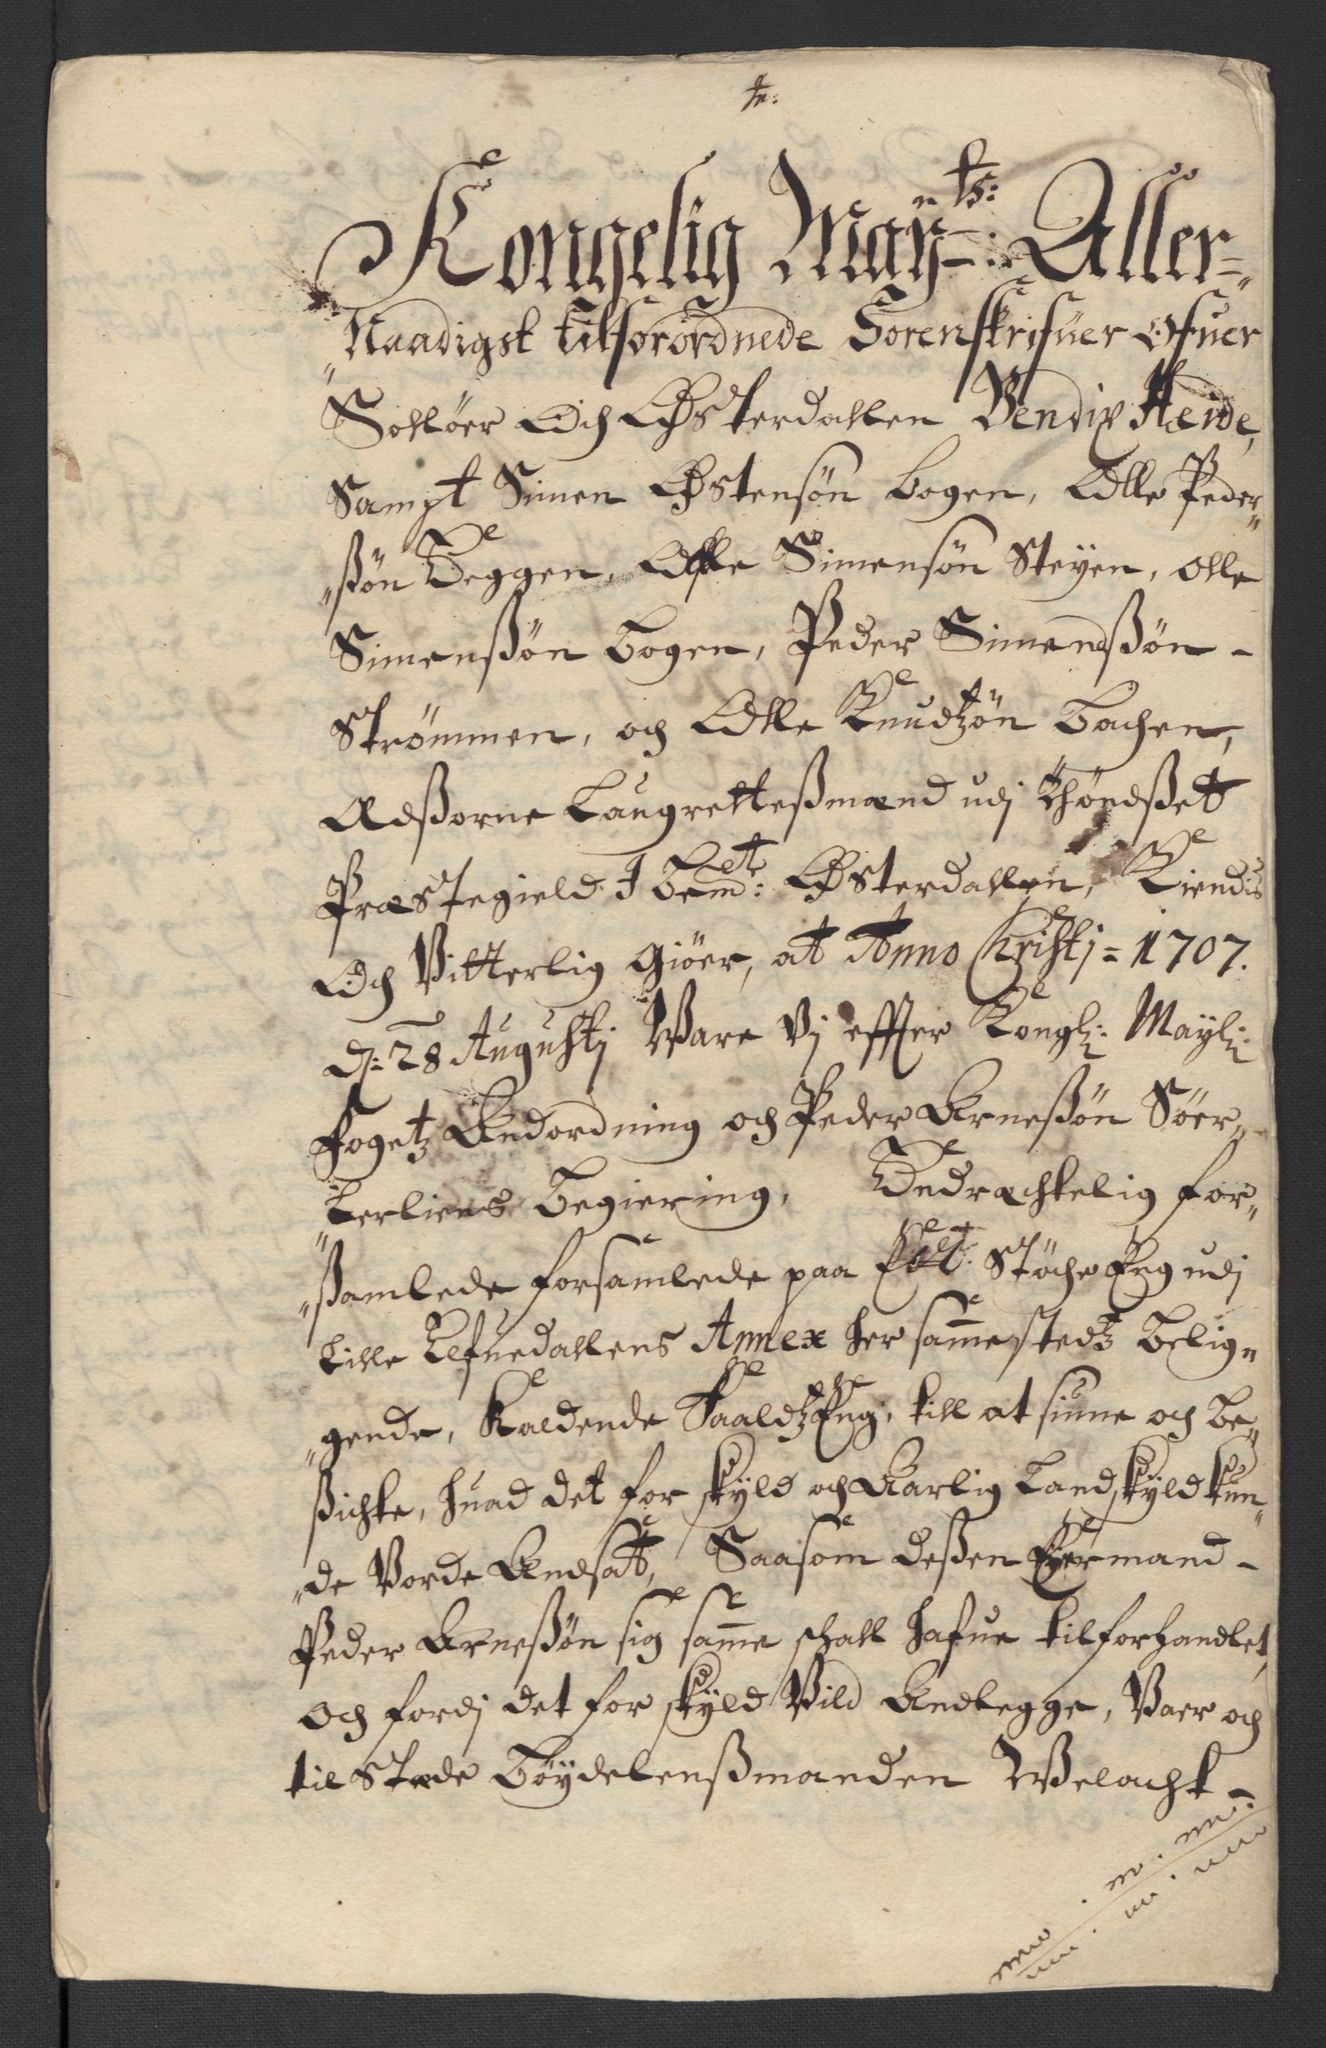 Kongelig Mayts: Aller-
Naadigst tilforordnede Sorenskrifuer Ofuer
Sollöer Och Østerdallen Bendix Heide,
Sampt Simen Østensön Bogen, Olle Peder-
ßön Beggen, Olle Simensön Steyen, olle
Simenßön Bogen, Peder Simenßön -
Strømmen, och Olle Knudtzön Bachen,
Edßorne Laugrettesmænd udj Thöndßet
Præstegield I Bemt: Østerdallen, Kiendis
Och Vitterlig Giöer, at Anno Christj = 1707.
d: 28 Augustj Ware Vj effter Kongl: Mayl:
Fogetz Andordning och Peder Arneßön Söer-
Berliens Begiering, Vedrachtelig for-
ßamlede forsamlede paa Et Støche Eng udj
Lille Elfuedallens Annex her samestedtz Belig-
gende, Kaldende Saaldtz Eng, till at siune och be-
ßichte, huad det for skyld och Aarlig Landskyld kun-
de Vorde Andsatt, Saasom deßen Eyermand -
Peder Arneßön sig same schall hafue tilforhandlet,
och fordj det for skyld Vild Andlegge, Vaer och
til Stæde Böydelensßmanden Welacht-